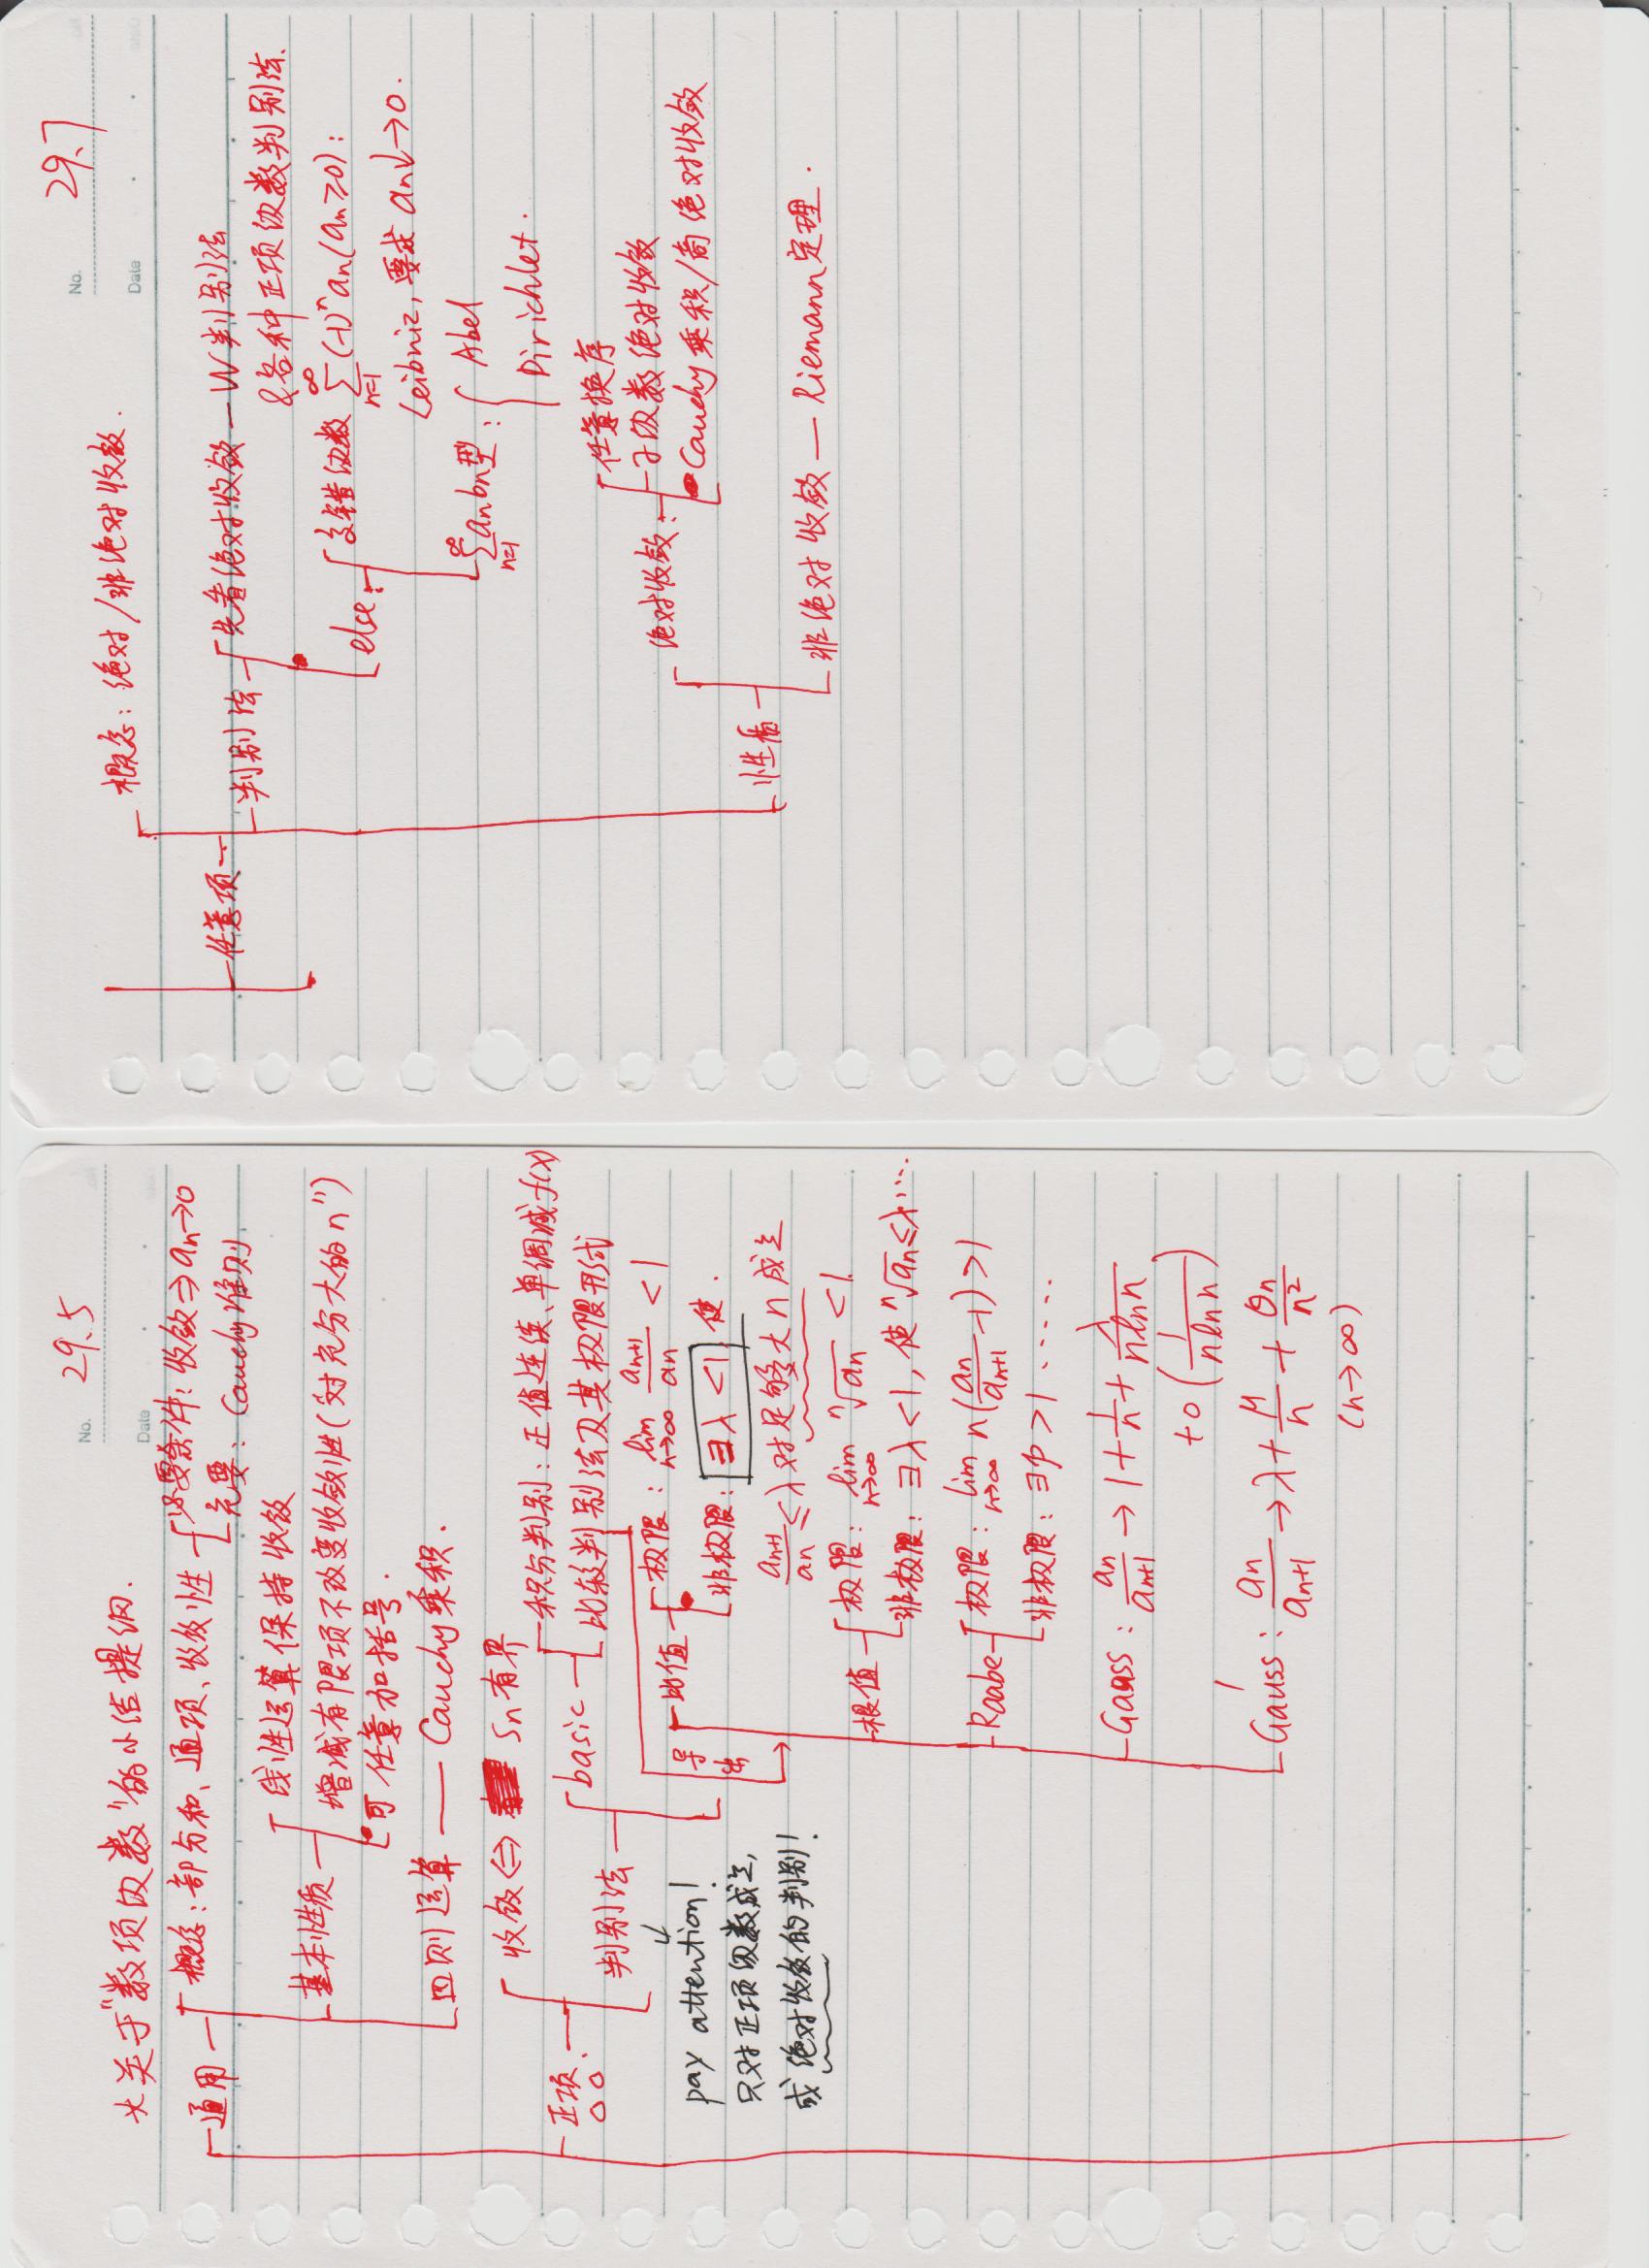 No. 29.5
☆关于"数项级数"的小结提纲.
Date
通用
概念: 部分和、通项、收敛性
必要条件: 收敛⇒an→0
充要: Cauchy准则
基本性质
线性运算保持收敛
增减有限项不改变收敛性("对充分大的n")
可任意加括号.
四则运算 —— Cauchy乘积.
正项
收敛⇔ Sn有界
判别法
basic
积分判别: 正值连续、单调减f(x)
比较判别法及其极限形式
导出
pay attention!
只对正项级数成立,
或绝对收敛的判别!
比值
极限: lim n→∞ an+1/an < 1
非极限: ∃λ<1, 使
an+1/an ≤ λ 对足够大n成立
根值
极限: lim n→∞ ⁿ√an < 1.
非极限: ∃λ<1, 使 ⁿ√an≤λ⋯
Raabe
极限: lim n→∞ n(an/an+1 -1) > 1
非极限: ∃p>1 ⋯⋯
Gauss: an/an+1 → 1 + 1/n + λ/(n ln n)
+ o(1/(n ln n))
Gauss': an/an+1 → λ + μ/n + θn/n²
(n→∞)
No. 29.7
Date
任意项
概念: 绝对/非绝对收敛.
判别法
先看绝对收敛 — W判别法
&各种正项级数判别法.
else:
交错级数 ∞∑n=1 (-1)ⁿ an (an≥0):
Leibniz, 要求 an↓→0.
∞∑n=1 an bn型:
Abel
Dirichlet.
性质
绝对收敛:
任意换序
子级数绝对收敛
Cauchy乘积/商绝对收敛
非绝对收敛 — Riemann定理.